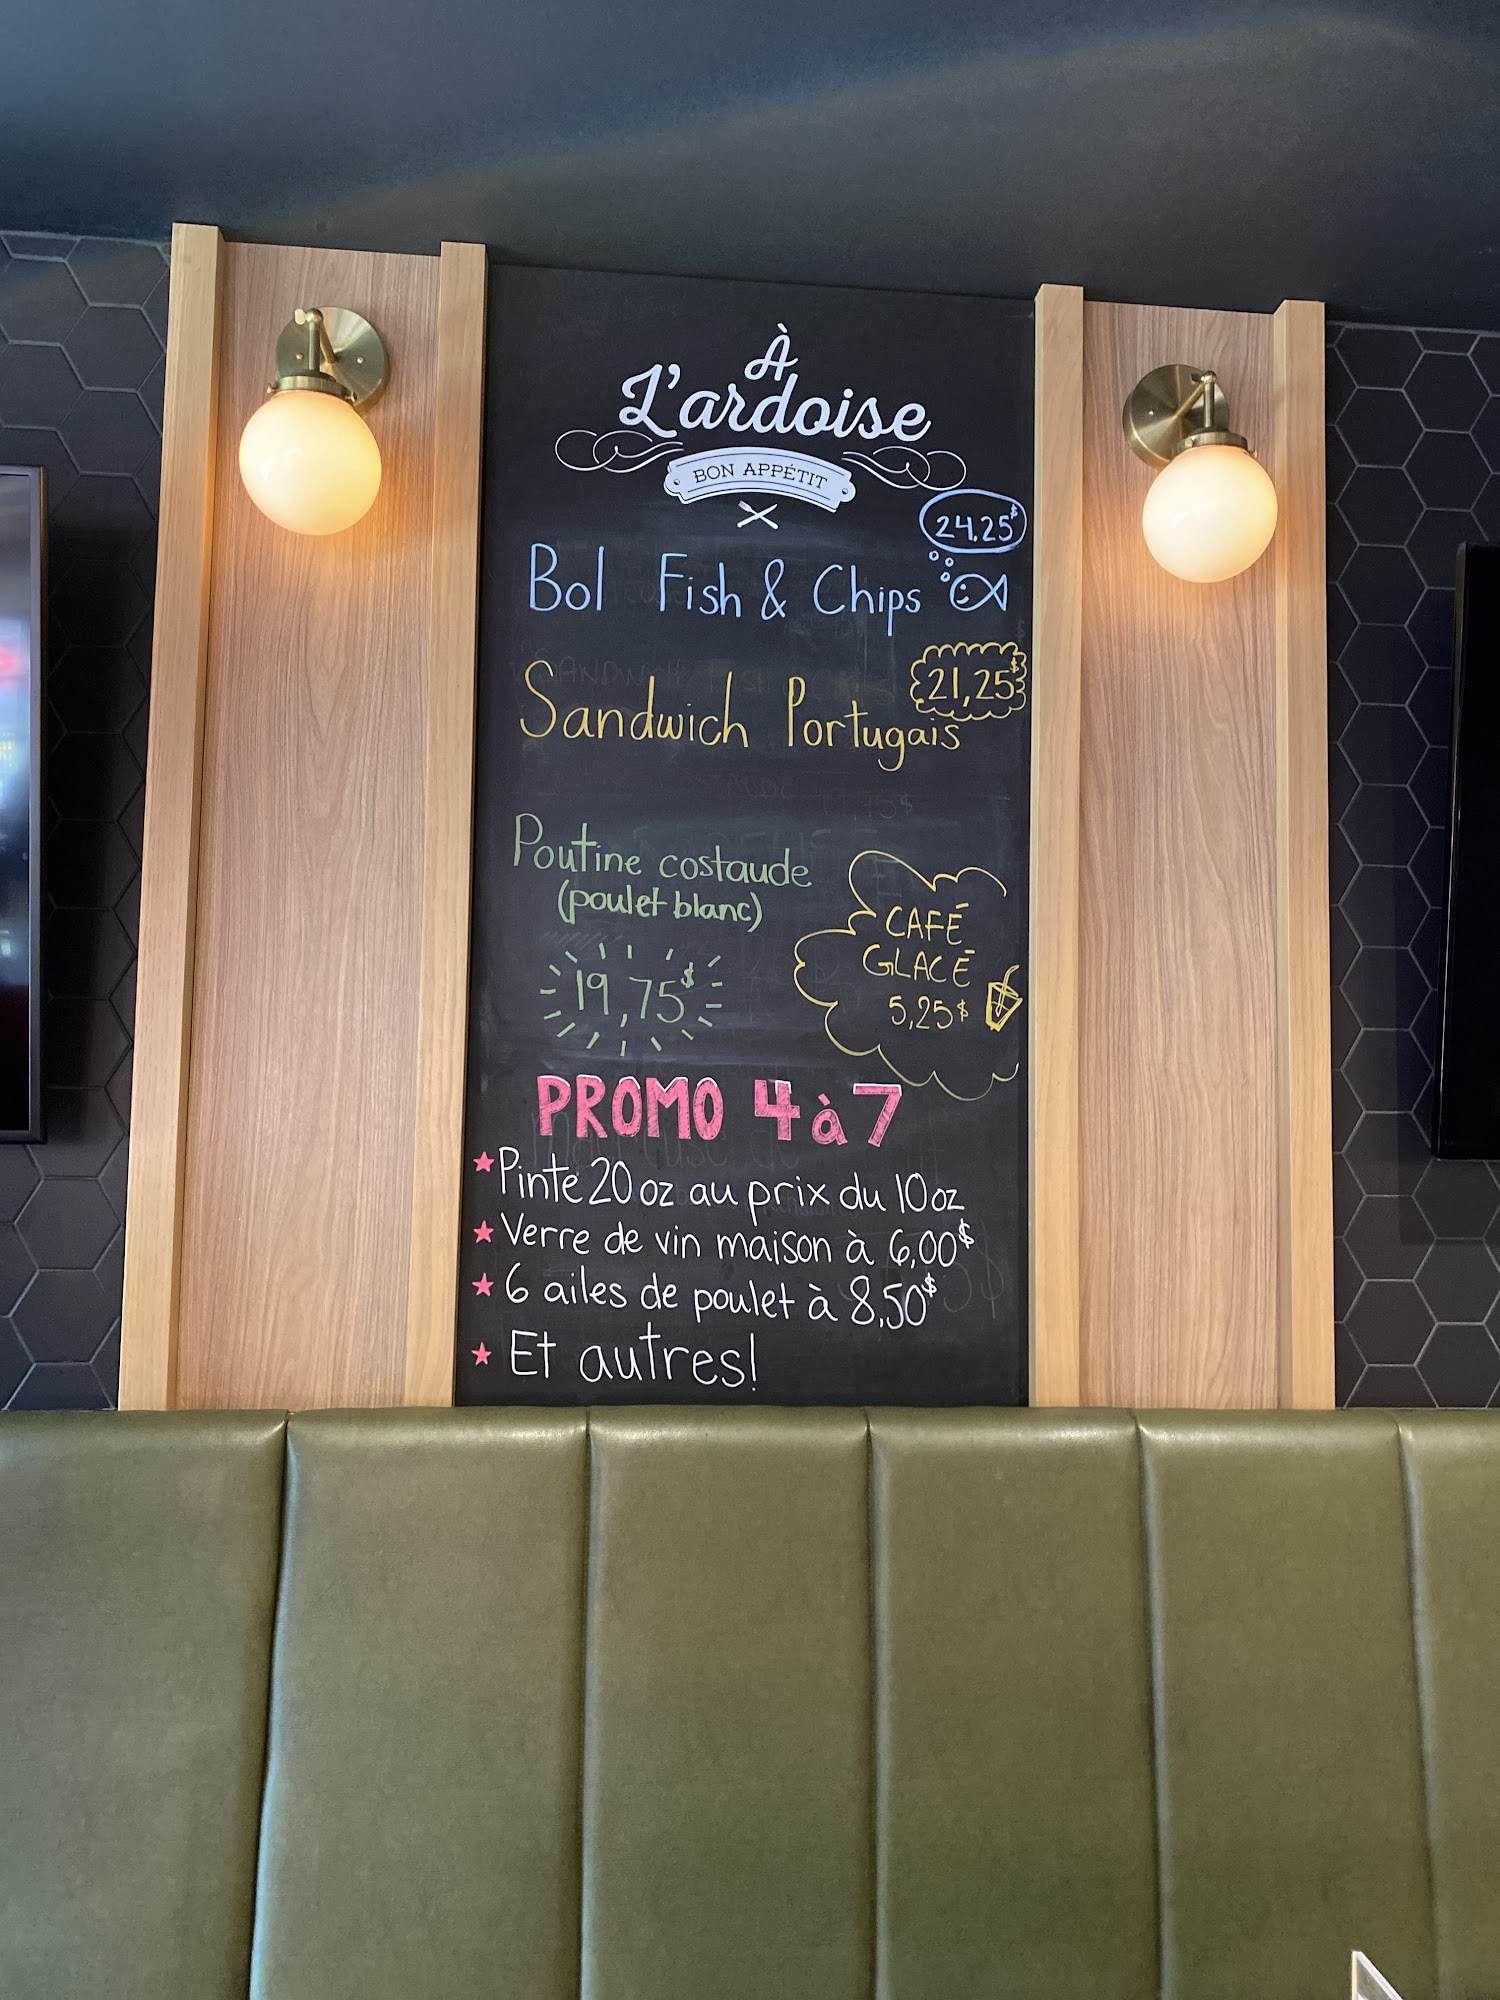 À
L'ardoise
BON APPÉTIT
24,25$
Bol Fish & Chips
21,25$
Sandwich Portugais
Poutine costaude
(poulet blanc)
19,75$
CAFÉ
GLACÉ
5,25$
PROMO 4 à 7
★ Pinte 20 oz au prix du 10 oz
★ Verre de vin maison à 6,00$
★ 6 ailes de poulet à 8,50$
★ Et autres!